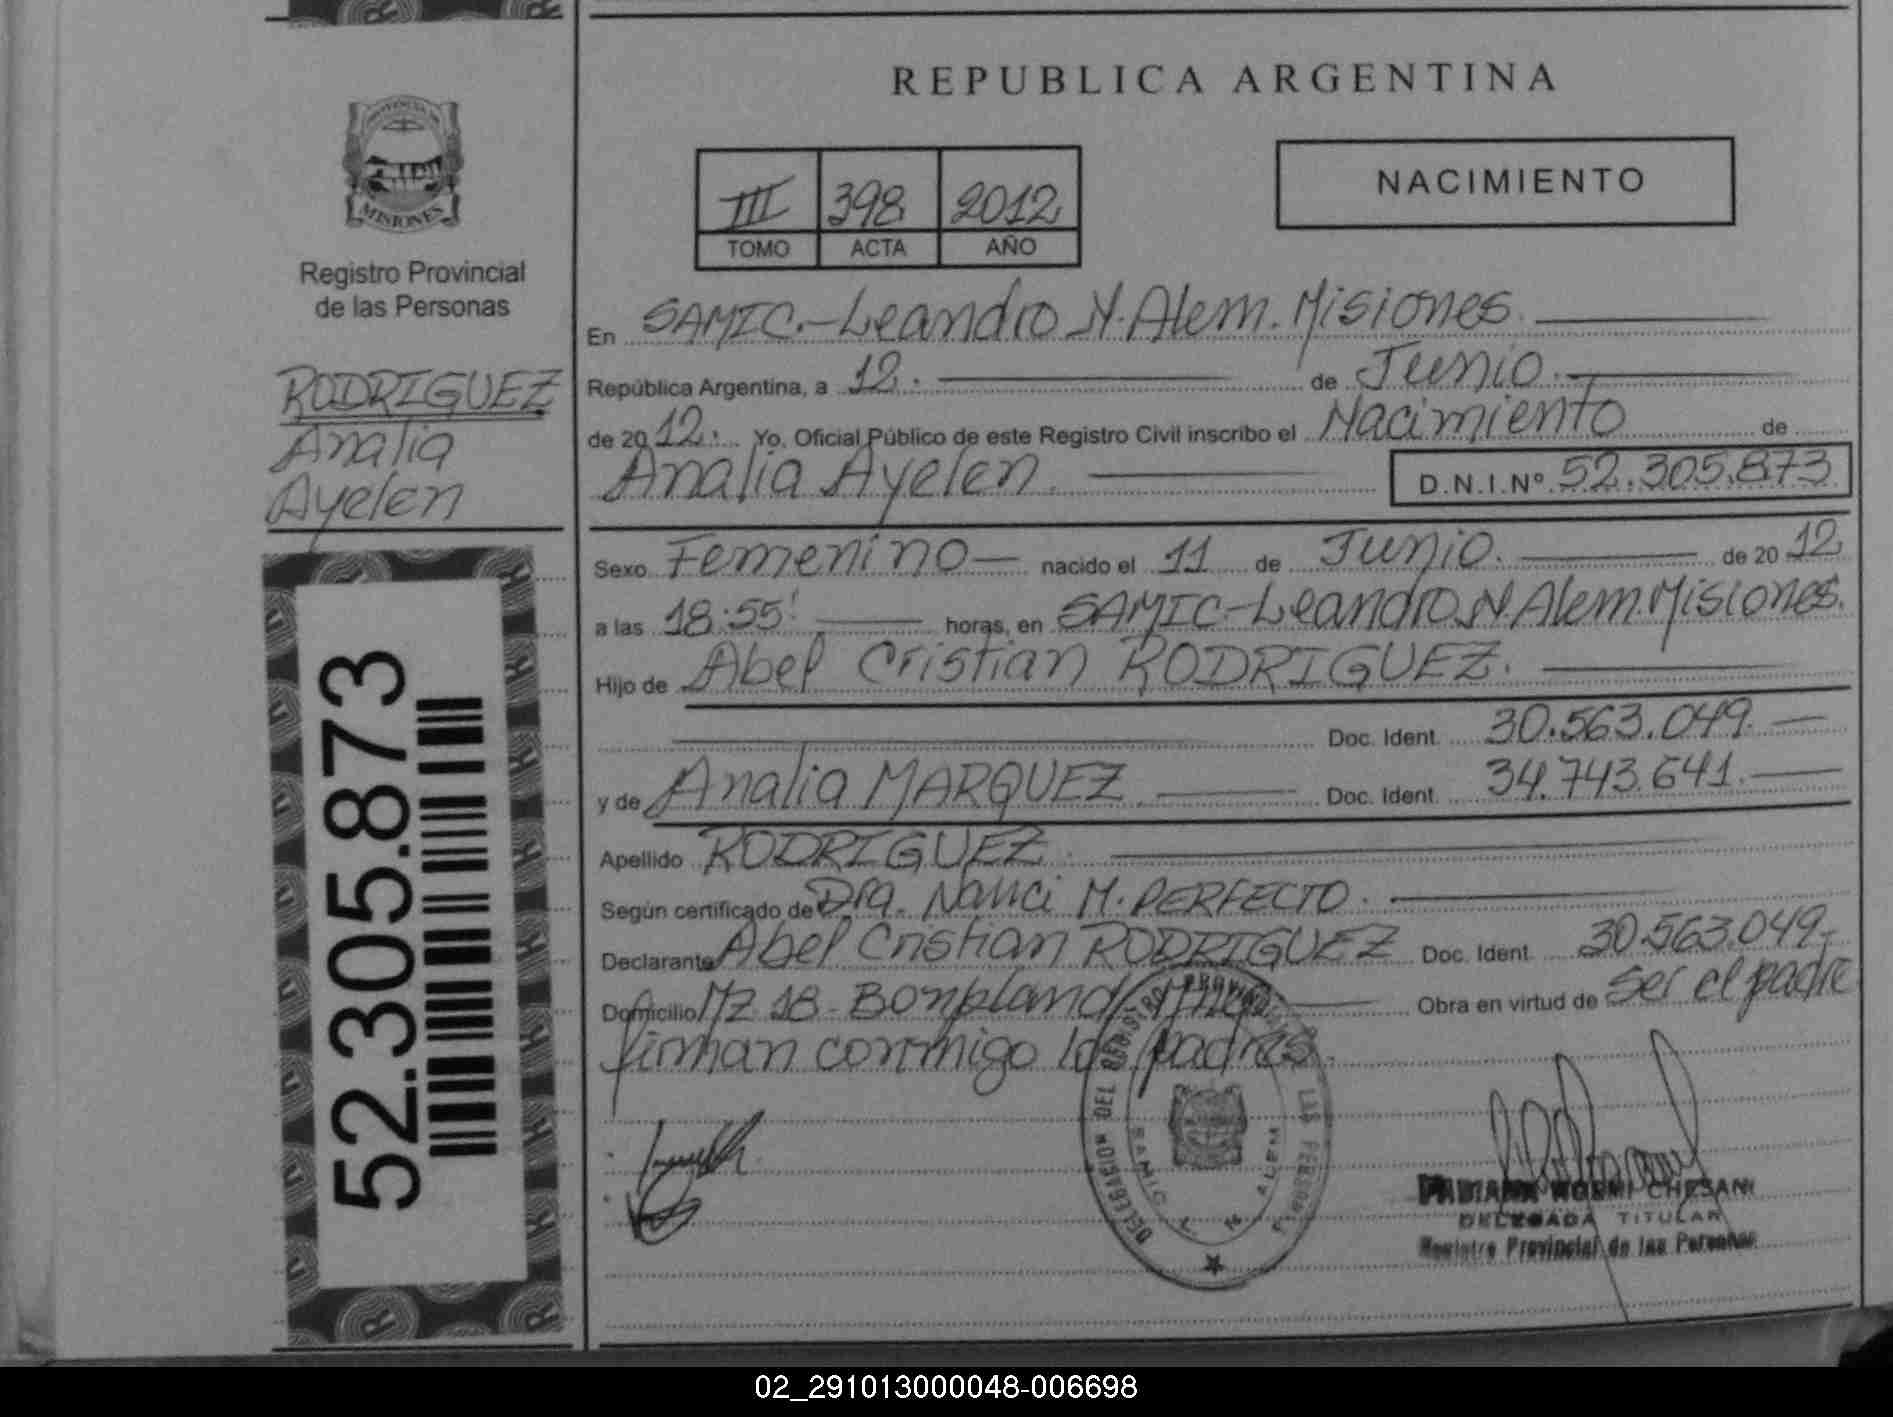 REPUBLICA ARGENTINA
PROVINCIA DE
MISIONES
Registro Provincial
de las Personas
RODRIGUEZ
Analia
Ayelen
52.305.873
III 398 2012
TOMO ACTA AÑO
NACIMIENTO
En SAMIC.-Leandro N. Alem. Misiones.
República Argentina, a 12. de Junio.
de 2012. Yo, Oficial Público de este Registro Civil inscribo el Nacimiento de
Analia Ayelen. D.N.I.Nº 52.305.873
Sexo Femenino nacido el 11 de Junio. de 2012
a las 18:55' horas, en SAMIC-Leandro N. Alem. Misiones.
Hijo de Abel Cristian RODRIGUEZ.
Doc. Ident. 30.563.049.
y de Analia MARQUEZ Doc. Ident. 34.743.641.
Apellido RODRIGUEZ.
Según certificado de Dra. Nanci M. PERFECTO.
Declarante Abel Cristian RODRIGUEZ Doc. Ident. 30.563.049-
Domicilio Mz. 18 - Bonpland, Mnes Obra en virtud de ser el padre
firman conmigo los padres.
DELEGACION DEL REGISTRO PROVINCIAL DE LAS PERSONAS
SAMIC L. N. ALEM
FABIANA NOEMI CHESANI
DELEGADA TITULAR
Registro Provincial de las Personas
02_291013000048-006698